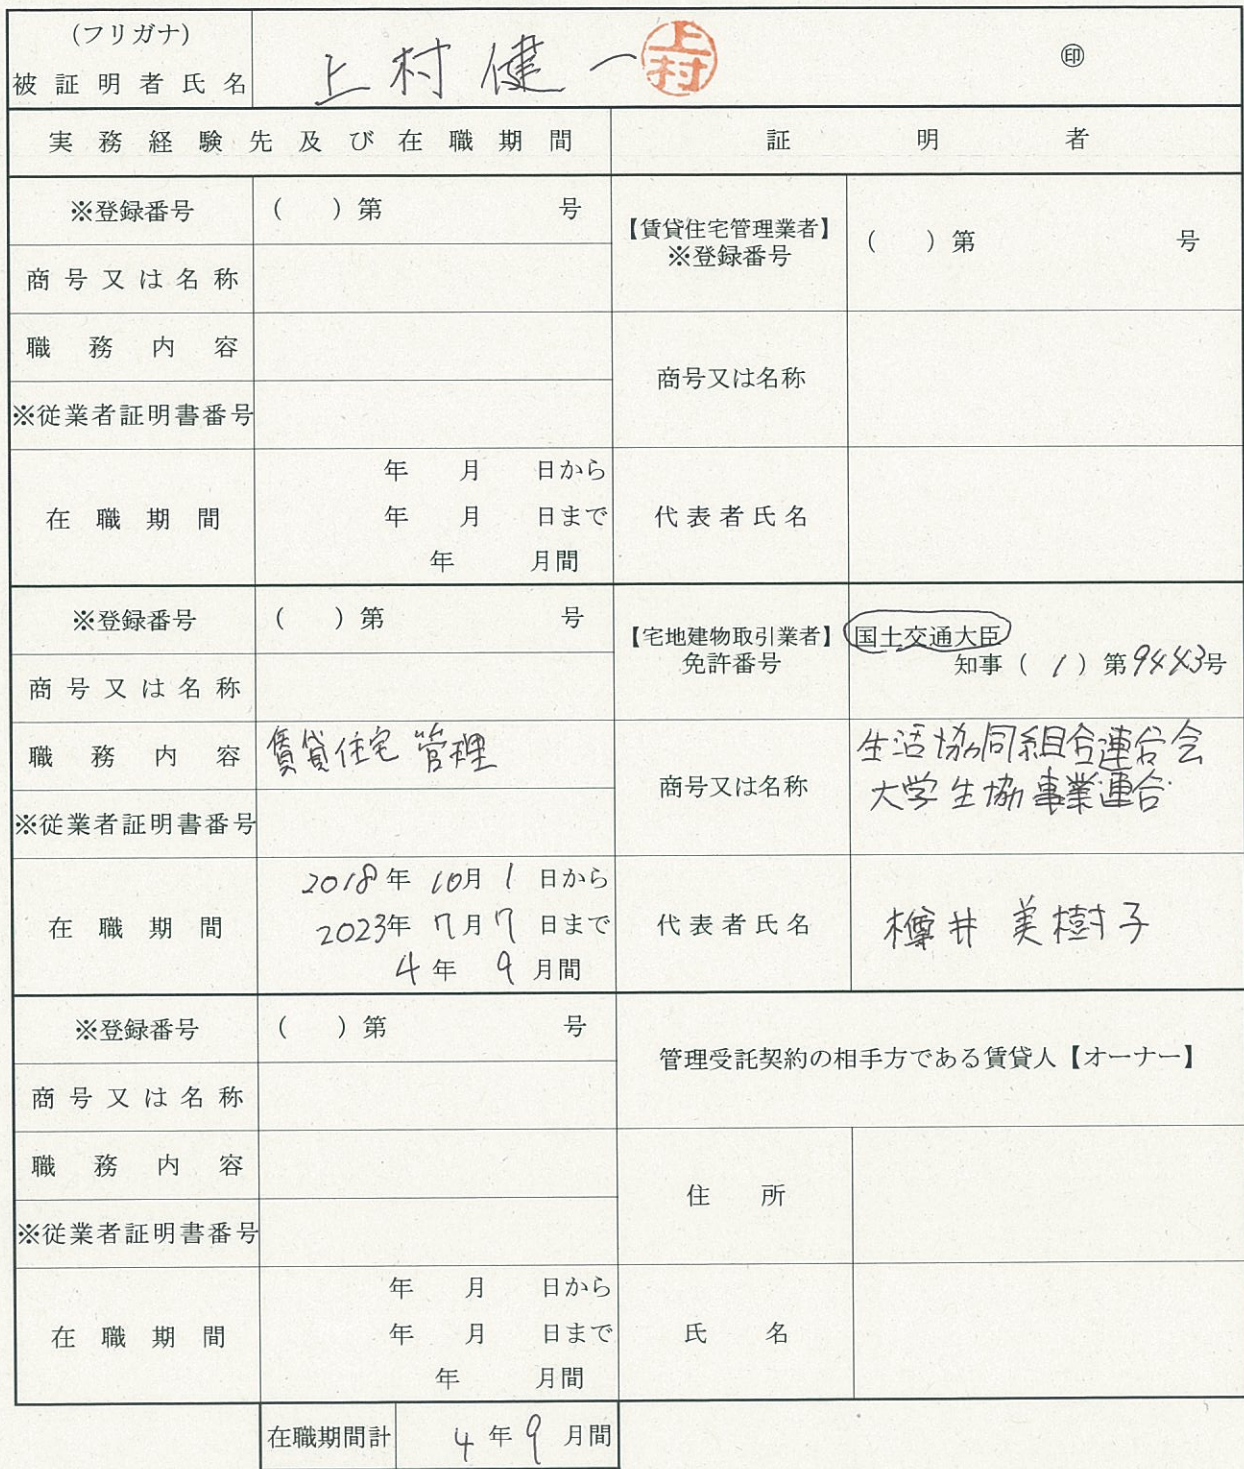 (フリガナ)
被証明者氏名 上村健一 上村 ㊞
実務経験先及び在職期間 証明者
※登録番号 ( )第 号
商号又は名称
職務内容
※従業者証明書番号
在職期間 年 月 日から
年 月 日まで
年 月間
【賃貸住宅管理業者】
※登録番号 ( )第 号
商号又は名称
代表者氏名
※登録番号 ( )第 号
商号又は名称
職務内容 賃貸住宅管理
※従業者証明書番号
在職期間 2018年10月1日から
2023年7月7日まで
4年9月間
【宅地建物取引業者】
免許番号
国土交通大臣
知事(1)第9443号
商号又は名称
生活協同組合連合会
大学生協事業連合
代表者氏名 樽井美樹子
※登録番号 ( )第 号
商号又は名称
職務内容
※従業者証明書番号
在職期間 年 月 日から
年 月 日まで
年 月間
管理受託契約の相手方である賃貸人【オーナー】
住所
氏名
在職期間計 4年9月間